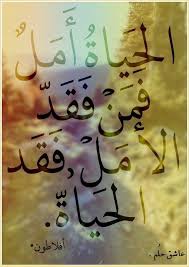 الحَيَاةُ أَمَلٌ
فَمَنْ فَقَدَ
الأَمَلْ فَقَد
الحَيَاةَ.
أفلاطون*
عاشق حلم .